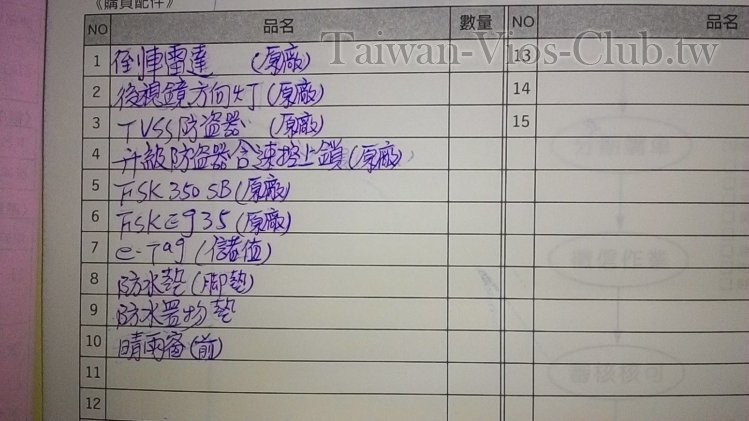 《購買配件》
NO 品名 數量 NO 品名
Taiwan-Vios-Club.tw
1 倒車雷達 (原廠) 13
2 後視鏡方向灯 (原廠) 14
3 TVSS防盜器 (原廠) 15
4 升級防盜器含速控上鎖 (原廠)
5 FSK 350 SB (原廠)
6 FSK E935 (原廠)
7 e-Tag (儲值)
8 防水墊 (脚墊)
9 防水置物墊
10 晴雨窗 (前)
11
12